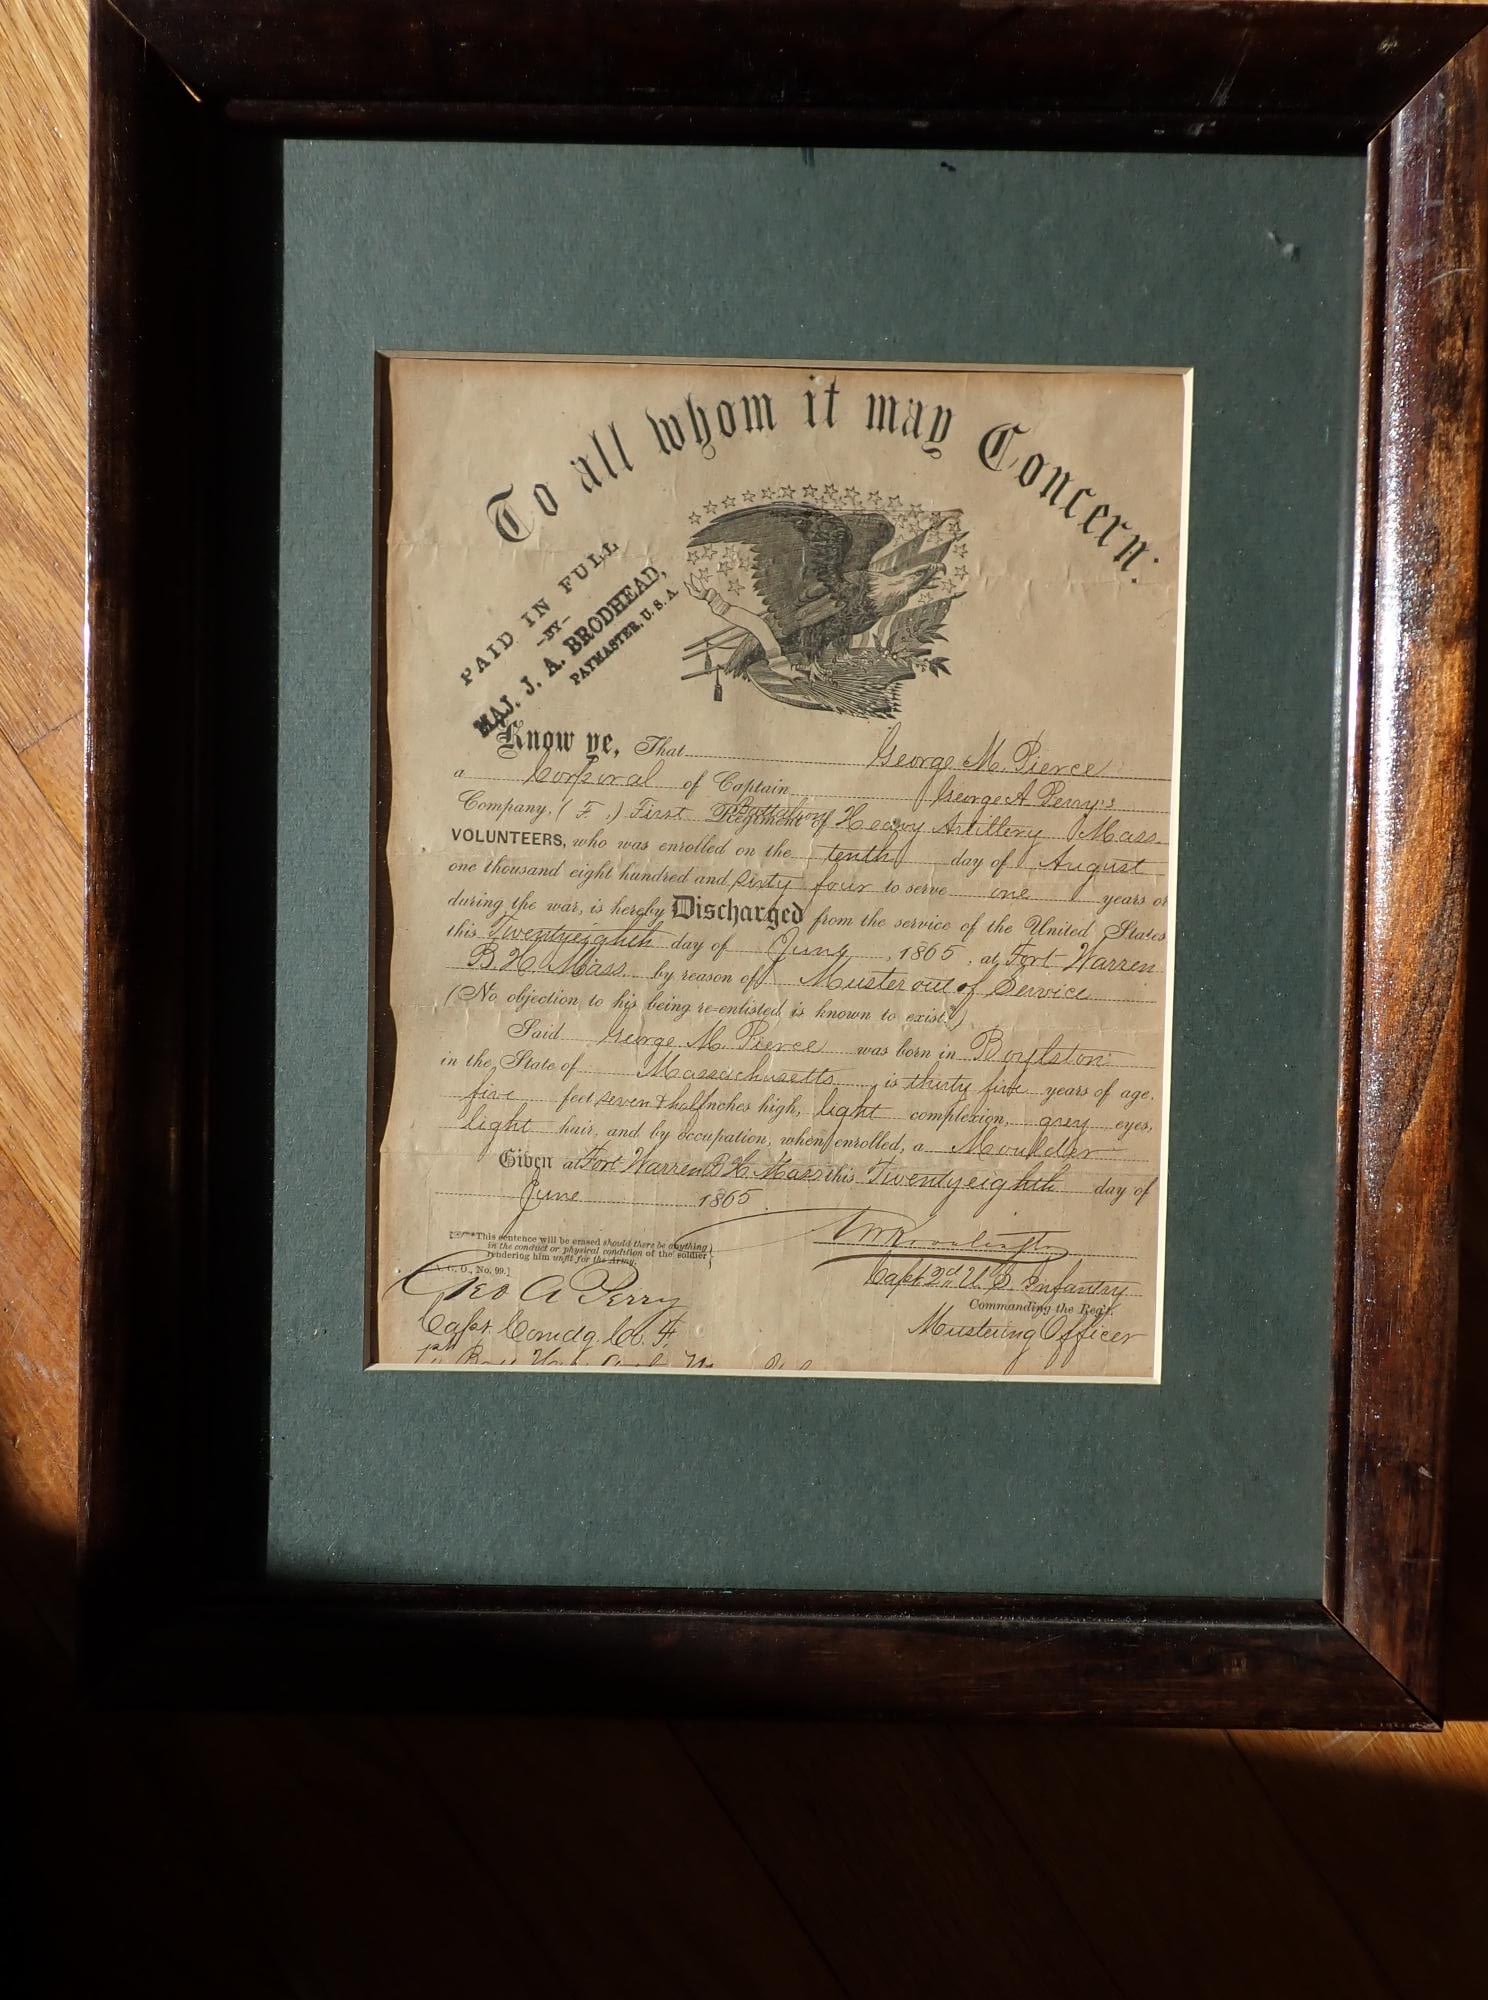 To all whom it may Concern:
PAID IN FULL
-BY-
MAJ. J. A. BRODHEAD,
PAYMASTER, U. S. A.
Know ye, That George M. Pierce
a Corporal of Captain George A Perry's
Company, ( F. ) First Battalion Regiment of Heavy Artillery Mass.
VOLUNTEERS, who was enrolled on the tenth day of August
one thousand eight hundred and sixty four to serve one years or
during the war, is hereby Discharged from the service of the United States
this Twentyeighth day of June, 1865, at Fort Warren
B. H. Mass by reason of Muster out of Service
(No objection to his being re-enlisted is known to exist.*)
Said George M. Pierce was born in Boylston
in the State of Massachusetts, is thirty five years of age,
five feet seven & half inches high, light complexion, grey eyes,
light hair, and by occupation, when enrolled, a Moulder
Given at Fort Warren B. H. Mass this Twentyeighth day of
June 1865
*This sentence will be erased should there be anything
in the conduct or physical condition of the soldier
rendering him unfit for the Army.
G. O., No. 99.]
Geo A Perry
Capt. Comdg. Co. F.
Capt 2d U S Infantry
Commanding the Reg't.
Mustering Officer